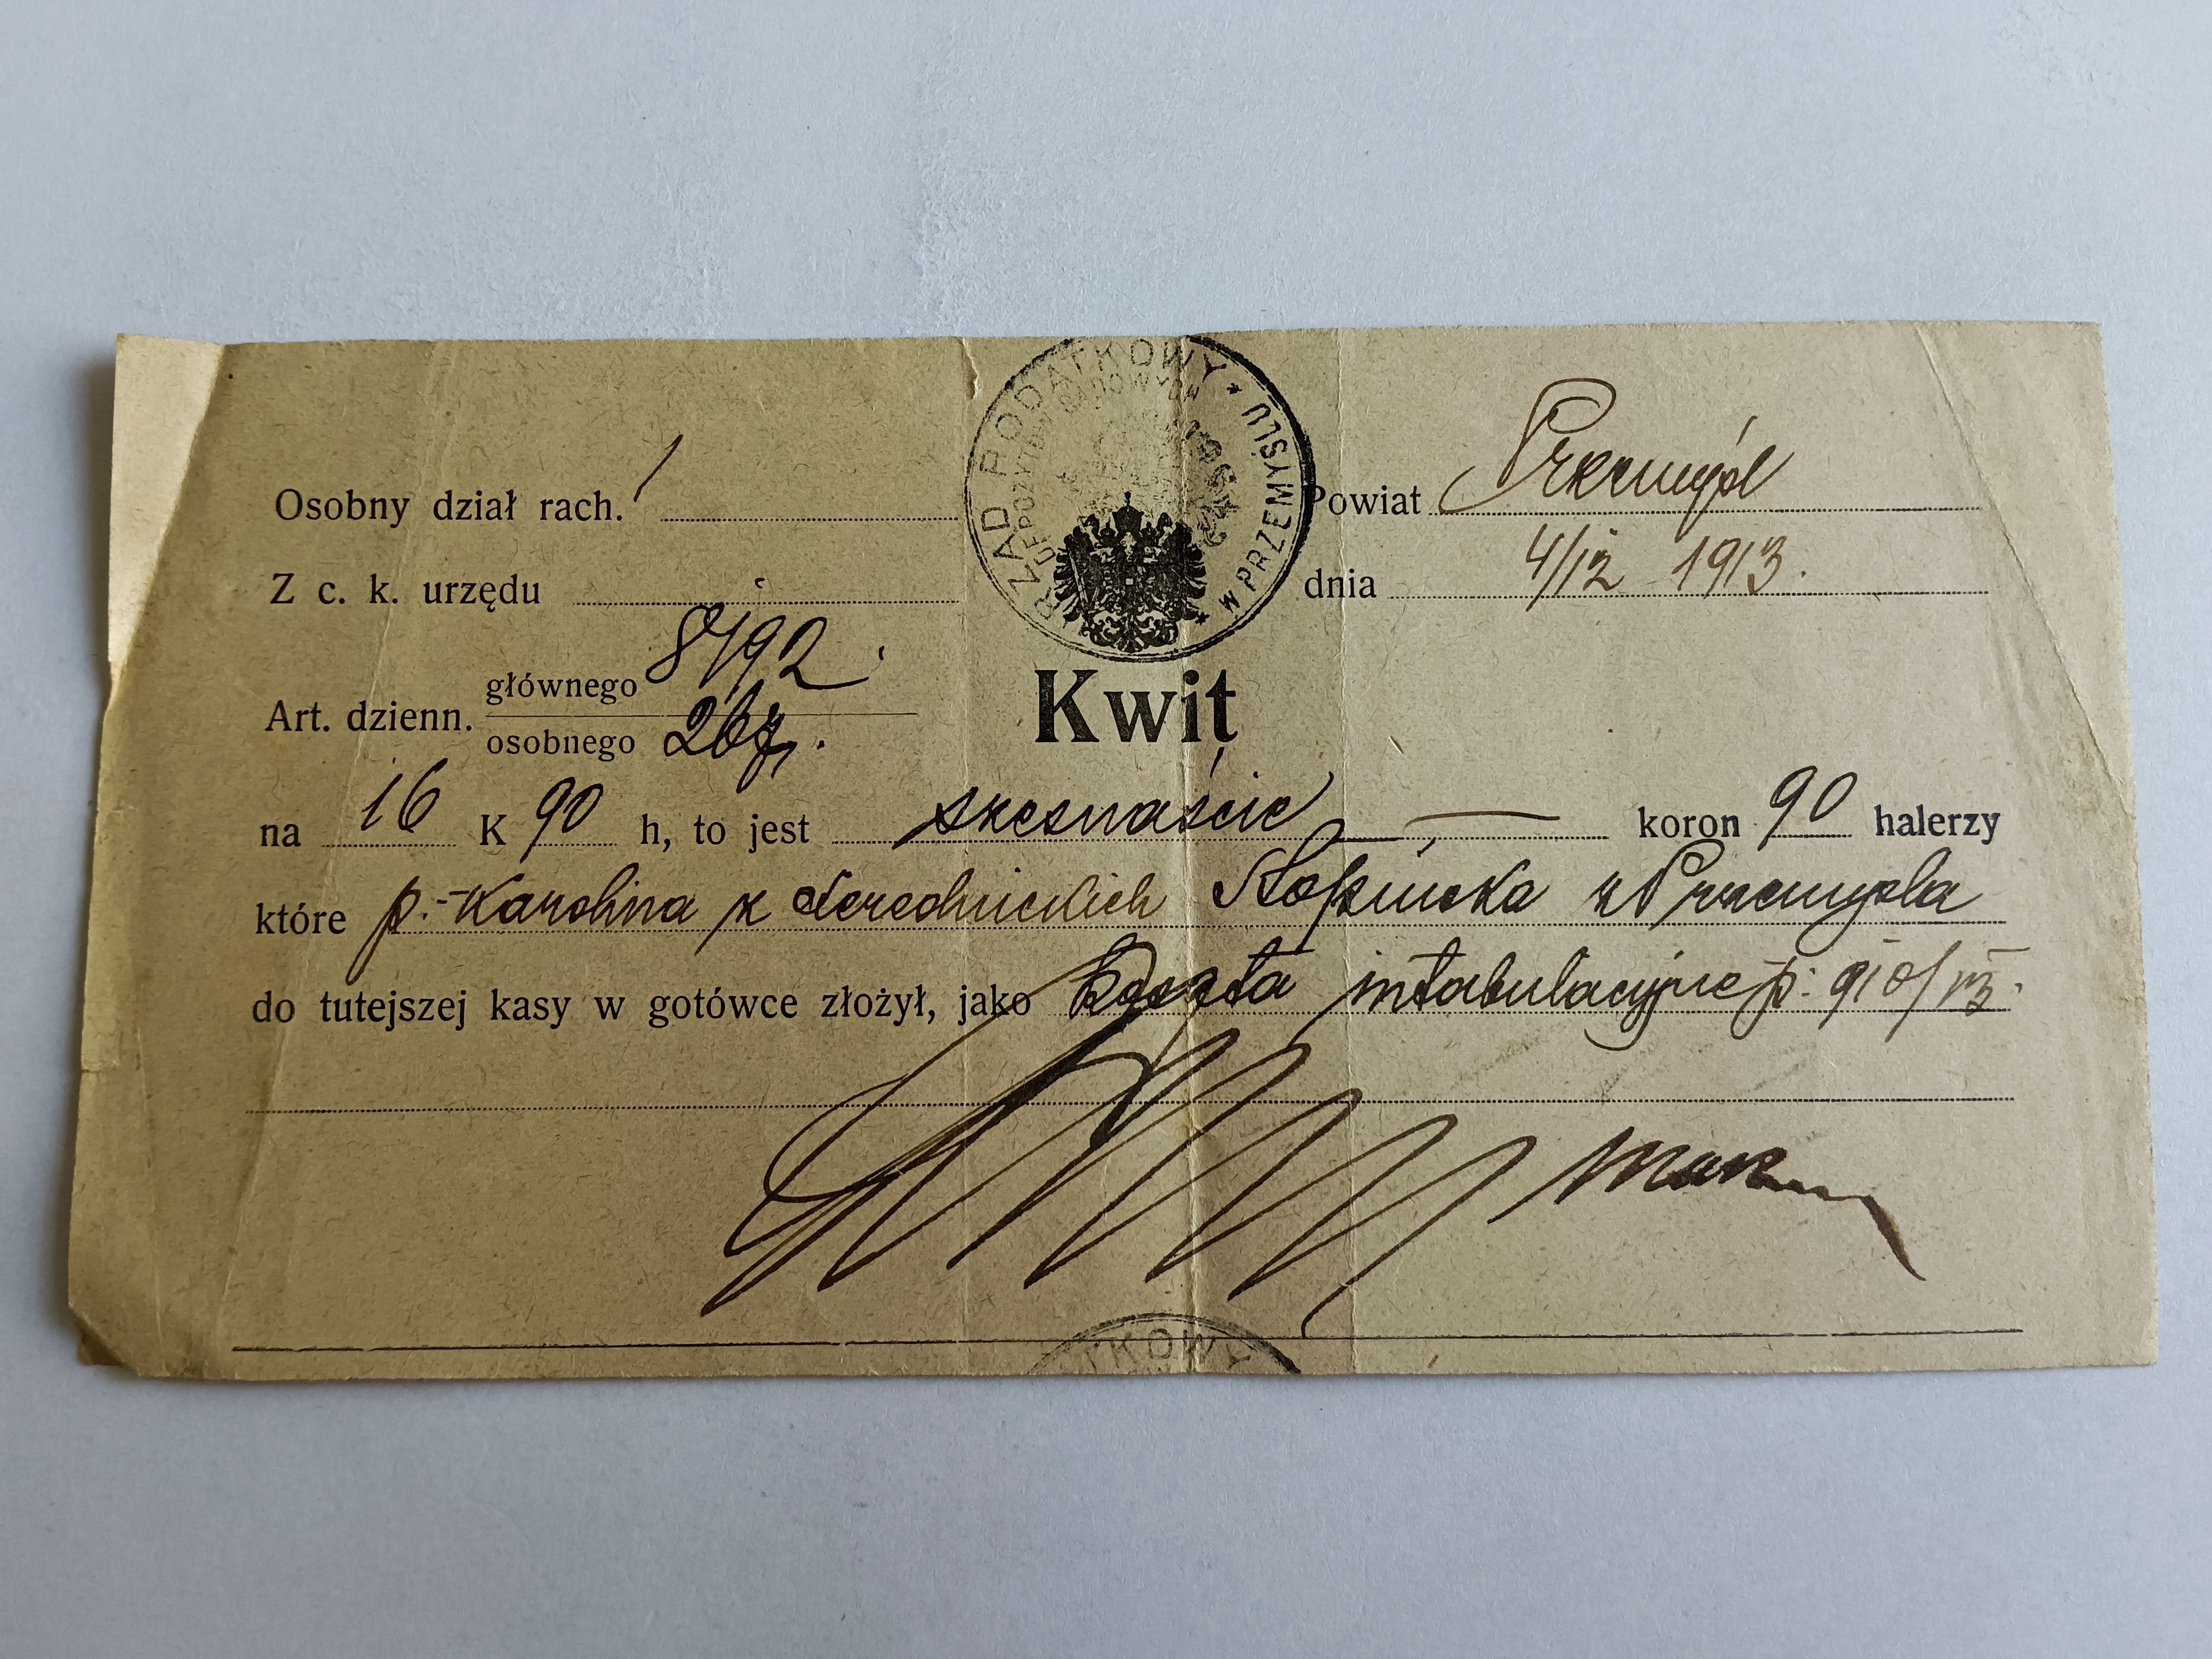 RZĄD PODATKOWY * W PRZEMYŚLU *
Osobny dział rach. Powiat Przemyśl
Z c. k. urzędu dnia 4/12 1913.
Art. dzienn. głównego 8192
osobnego 267.
Kwit
na 16 K 90 h, to jest szesnaście — koron 90 halerzy
które p. Karolina z Serednickich z Przemyśla
do tutejszej kasy w gotówce złożył, jako koszta intabulacyjne p: 910/13.
TKOWY